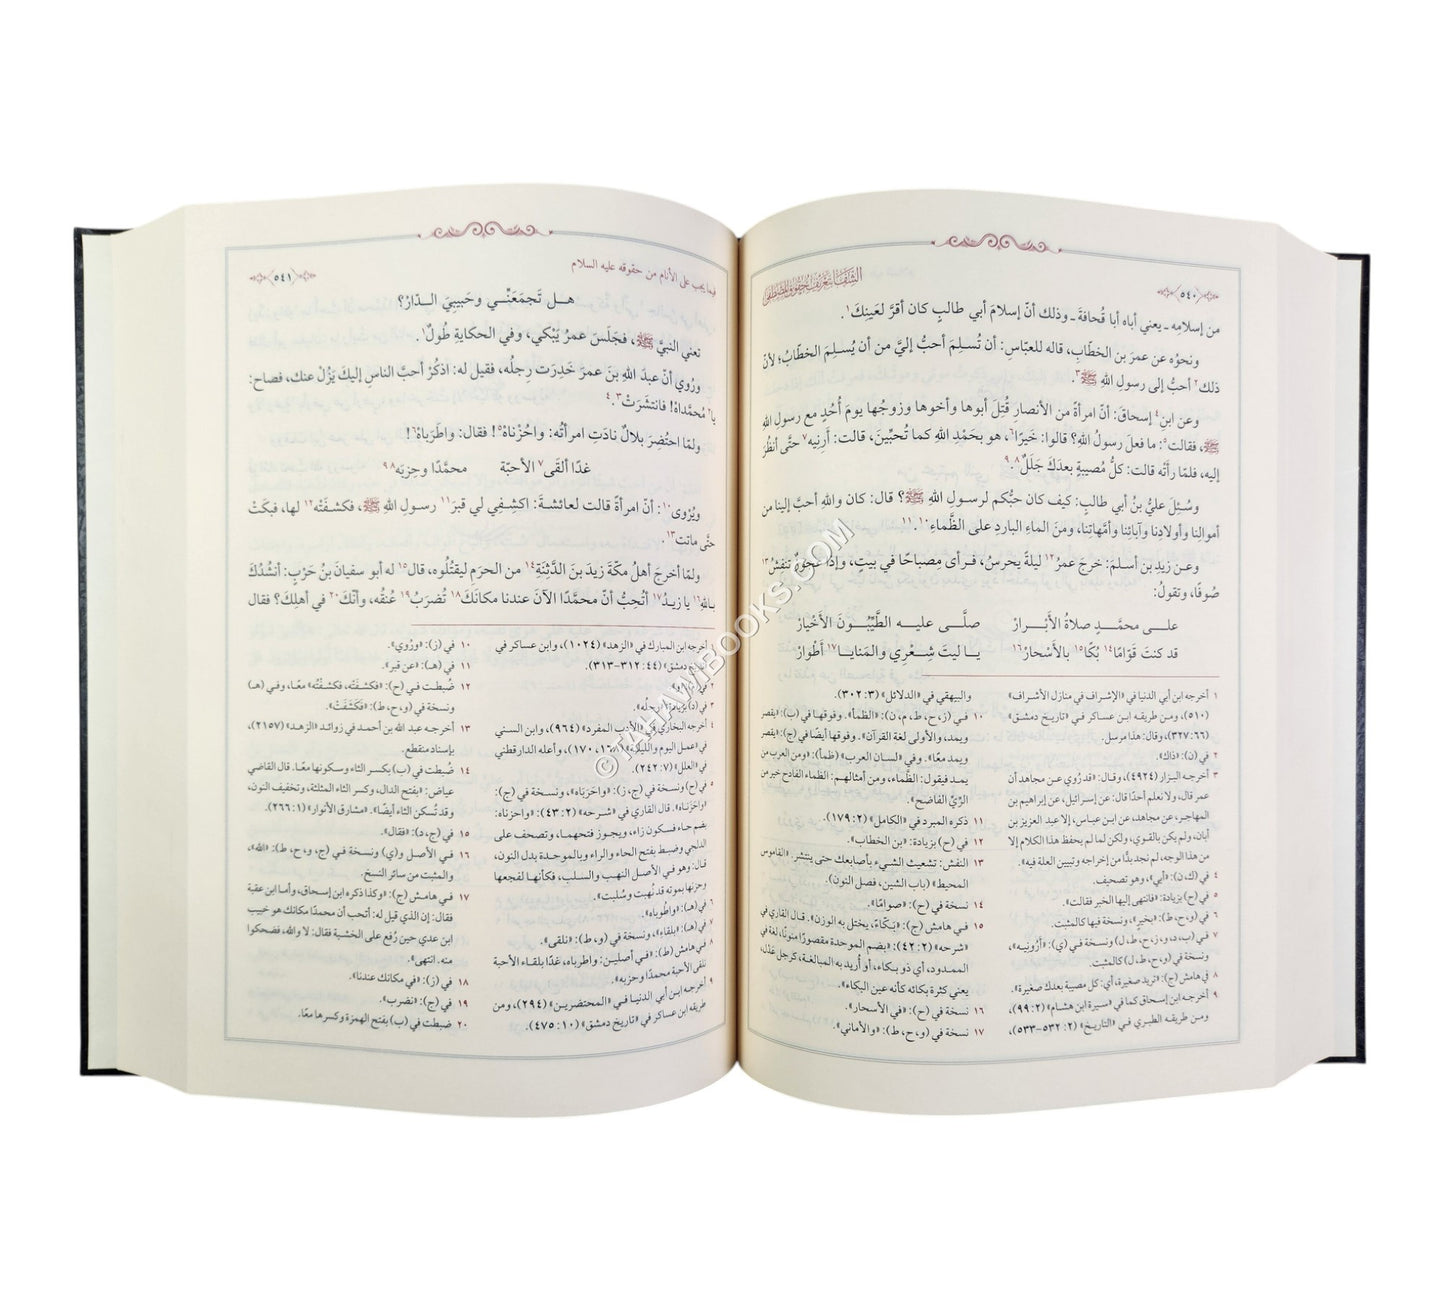 ﴿٥٤٠﴾ الشفا بتعريف حقوق المصطفى
من إسلامِه ـ يعني أباه أبا قُحافةَ ـ وذلك أنّ إسلامَ أبي طالبٍ كان أقرَّ لعَينِك١.
ونحوُه عن عمرَ بنِ الخطّابِ، قاله للعبّاسِ: أن تُسلِمَ أحبُّ إليَّ من أن يُسلِمَ الخطّابُ؛ لأنّ
ذلك٢ أحبُّ إلى رسولِ اللهِ ﷺ٣.
وعن ابنِ٤ إسحاقَ: أنّ امرأةً من الأنصارِ قُتِلَ أبوها وأخوها وزوجُها يومَ أُحُدٍ مع رسولِ اللهِ
ﷺ، فقالت٥: ما فعلَ رسولُ اللهِ؟ قالوا: خَيرًا٦، هو بحَمْدِ اللهِ كما تُحبِّينَ، قالت: أَرِنِيه٧ حتَّى أنظُرَ
إليه، فلمّا رأَتْه قالت: كلُّ مُصيبةٍ بعدَكَ جَلَلٌ٨،٩.
وسُئِلَ عليُّ بنُ أبي طالبٍ: كيف كان حبُّكم لرسولِ اللهِ ﷺ؟ قال: كان واللهِ أحبَّ إلينا من
أموالِنا وأولادِنا وآبائِنا وأمَّهاتِنا، ومنَ الماءِ الباردِ على الظَّماءِ١٠،١١.
وعن زيدِ بنِ أسلمَ: خرجَ عمرُ١٢ ليلةً يحرسُ، فرأى مِصباحًا في بيتٍ، وإذا عجوزٌ تنفُشُ١٣
صُوفًا، وتقولُ:
على محمَّدٍ صلاةُ الأبْرارْ صلَّى عليه الطَّيِّبُونَ الأخْيارْ
قد كنتَ قَوّامًا١٤ بُكًا١٥ بالأسْحارْ١٦ يا ليتَ شِعْرِي والمَنايا١٧ أطْوارْ
١ أخرجه ابن أبي الدنيا في «الإشراف في منازل الأشراف»
(٥١٠)، ومن طريقه ابن عساكر في «تاريخ دمشق»
(٦٦: ٣٢٧)، وقال: هذا مرسل.
٢ في (ن): «ذاك».
٣ أخرجه البزار (٤٩٢٤)، وقال: «قد رُوي عن مجاهد أن
عمر قال، ولا نعلم أحدًا قال: عن إسرائيل، عن إبراهيم بن
المهاجر، عن مجاهد، عن ابن عباس، إلا عبد العزيز بن
أبان، ولم يكن بالقوي، ولكن لما لم يحفظ هذا الكلام إلا
من هذا الوجه، لم نجد بدًّا من إخراجه وتبيين العلة فيه».
٤ في (ك، ن): «أبي»، وهو تصحيف.
٥ في (ح) بزيادة: «فانتهى إليها الخبر فقالت».
٦ في (و، ح، ط): «بخير»، ونسخة فيها كالمثبت.
٧ في (ب، د، و، ز، ح، ط، ل) ونسخة في (ي): «أرُونِيه»،
ونسخة في (و، ح، ط، ل) كالمثبت.
٨ في هامش (ج): «تريد صغيرة، أي: كل مصيبة بعدك صغيرة».
٩ أخرجه ابن إسحاق كما في «سيرة ابن هشام» (٢: ٩٩)،
ومن طريقه الطبري في «التاريخ» (٢: ٥٣٢-٥٣٣)
والبيهقي في «الدلائل» (٣: ٣٠٢).
١٠ في (ز، ح، ط، م، ن): «الظمأ». وفوقها في (ب): «يقصر
ويمد، والأولى لغة القرآن». وفوقها أيضًا في (ج): «يقصر
ويمد معًا». وفي «لسان العرب» (ظمأ): «ومن العرب من
يمد فيقول: الظَّماء، ومن أمثالهم: الظماء الفادح خير من
الرِّيِّ الفاضح».
١١ ذكره المبرد في «الكامل» (٢: ١٧٩).
١٢ في (ح) بزيادة: «بن الخطاب».
١٣ النفش: تشعيث الشيء بأصابعك حتى ينتشر: «القاموس
المحيط» (باب الشين، فصل النون).
١٤ نسخة في (ح): «صوامًا».
١٥ في هامش (ج): «بَكّاءً، يختل به الوزن». قال القاري في
«شرحه» (٢: ٤٢): «بضم الموحدة مقصورًا منونًا، لغة في
الممدود، أي ذو بكاء، أو أُريد به المبالغة، كرجل عَدل،
يعني كثرة بكائه كأنه عين البكاء».
١٦ نسخة في (ح): «في الأسحار».
١٧ نسخة في (و، ح، ط): «والأماني».
فيما يجب على الأنام من حقوقه عليه السلام ﴿٥٤١﴾
هل تَجمَعَنِّي وحَبيبِيَ الدّارُ؟
تعني النبيَّ ﷺ، فجَلَسَ عمرُ يَبْكي، وفي الحكايةِ طُولٌ١.
ورُوي أنّ عبدَ اللهِ بنَ عمرَ خَدِرَت رِجلُه، فقيل له: اذكُرْ أحبَّ الناسِ إليكَ يَزُلْ عنك، فصاح:
يا٢ مُحمَّداهْ! فانتشَرَتْ٣،٤.
ولمّا احتُضِرَ بلالٌ نادَتِ امرأتُه: واحُزْناهْ٥! فقال: واطَرَباهْ٦!
غدًا ألقَى٧ الأحبّهْ محمَّدًا وحِزبَه٨،٩
ويُرْوى١٠: أنّ امرأةً قالت لعائشةَ: اكشِفِي لي قبرَ١١ رسولِ اللهِ ﷺ، فكشفَتْه١٢ لها، فبكَتْ
حتَّى ماتت١٣.
ولمّا أخرجَ أهلُ مكّةَ زيدَ بنَ الدَّثِنَةِ١٤ من الحرَمِ ليقتُلُوه، قال١٥ له أبو سفيانَ بنُ حَرْبٍ: أنشُدُكَ
باللهِ١٦ يا زيدُ١٧ أتُحبُّ أنّ محمَّدًا الآنَ عندنا مكانَكَ١٨ تُضرَبُ١٩ عُنقُه، وأنَّكَ٢٠ في أهلِكَ؟ فقال
أخرجه ابن المبارك في «الزهد» (١٠٢٤)، وابن عساكر في
دمشق» (٤٤: ٣١٢-٣١٣).
٣ في (د) بزيادة: «رجلُه».
٤ أخرجه البخاري في «الأدب المفرد» (٩٦٤)، وابن السني
في «عمل اليوم والليلة» ، ١٧٠)، وأعله الدارقطني
في «العلل» (٧: ٢٤٢).
٥ في (ح) ونسخة في (ج، ز): «واحَرَباه»، ونسخة في (ج):
«واحَزَناه». قال القاري في «شرحه» (٢: ٤٣): «واحزناه:
بضم حاء فسكون زاء، ويجوز فتحهما، وتصحف على
الدلجي وضبط بفتح الحاء والراء وبالموحدة بدل النون،
قال: وهو في الأصل النهب والسلب، فكأنها لفجعها
وحزنها بموته قد نُهبت وسُلبت».
٦ في (هـ): «واطُوباه».
٧ في (هـ): «بلقاء»، ونسخة في (و، ط): «نلقى».
٨ في هامش (ط): «في أصلين: واطرباه، غدًا بلقاء الأحبة
نلقى الأحبة محمدًا وحزبه».
٩ أخرجه ابن أبي الدنيا في «المحتضرين» (٢٩٤)، ومن
طريقه ابن عساكر في «تاريخ دمشق» (١٠: ٤٧٥).
١٠ في (ز): «ورُوي».
١١ في (هـ): «عن قبر».
١٢ ضُبطت في (ح): «فكشفَتَه، فكشفْتُه» معًا، وفي (هـ)
ونسخة في (و، ح، ط): «فكَشَفَتْ».
١٣ أخرجه عبد الله بن أحمد في زوائد «الزهد» (٢١٥٧)،
بإسناد منقطع.
١٤ ضُبطت في (ب) بكسر الثاء وسكونها معًا. قال القاضي
عياض: «بفتح الدال، وكسر الثاء المثلثة، وتخفيف النون،
وقد تُسكن الثاء أيضًا». «مشارق الأنوار» (١: ٢٦٦).
١٥ في (ج، د): «فقال».
١٦ في الأصل و(ي) ونسخة في (ج، و، ح، ط): «الله»،
والمثبت من سائر النسخ.
١٧ في هامش (ج): «وكذا ذكره ابن إسحاق، وأما ابن عقبة
فقال: إن الذي قيل له: أتحب أن محمدًا مكانك هو خبيب
ابن عدي حين رُفع على الخشبة فقال: لا والله، فضحكوا
منه. انتهى».
١٨ في (ز): «في مكانك عندنا».
١٩ في (ج): «نضرب».
٢٠ ضبطت في (ب) بفتح الهمزة وكسرها معًا.
© TAHAWIBOOKS.COM